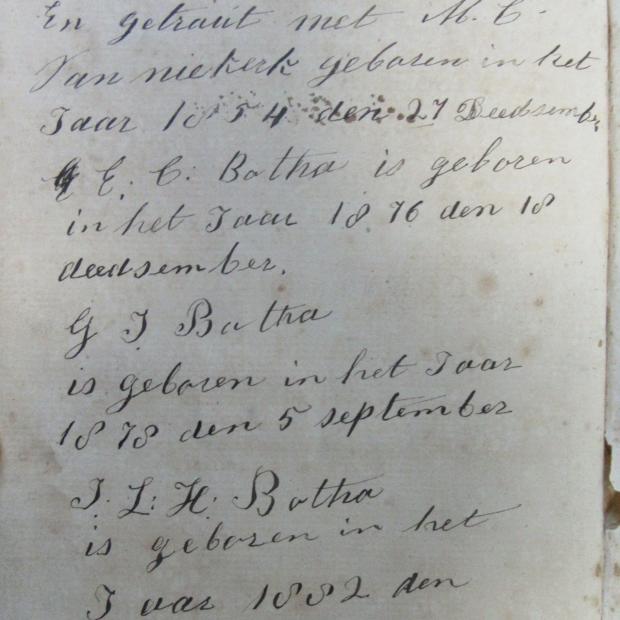 En getrout met M. C.
Van niekerk geboren in het
Jaar 1854 den 27 Deedsember
E. C. Botha is geboren
in het Jaar 1876 den 18
deedsember.
G J Botha
is geboren in het Jaar
1878 den 5 september
J. L: H. Botha
is geboren in het
Jaar 1882 den